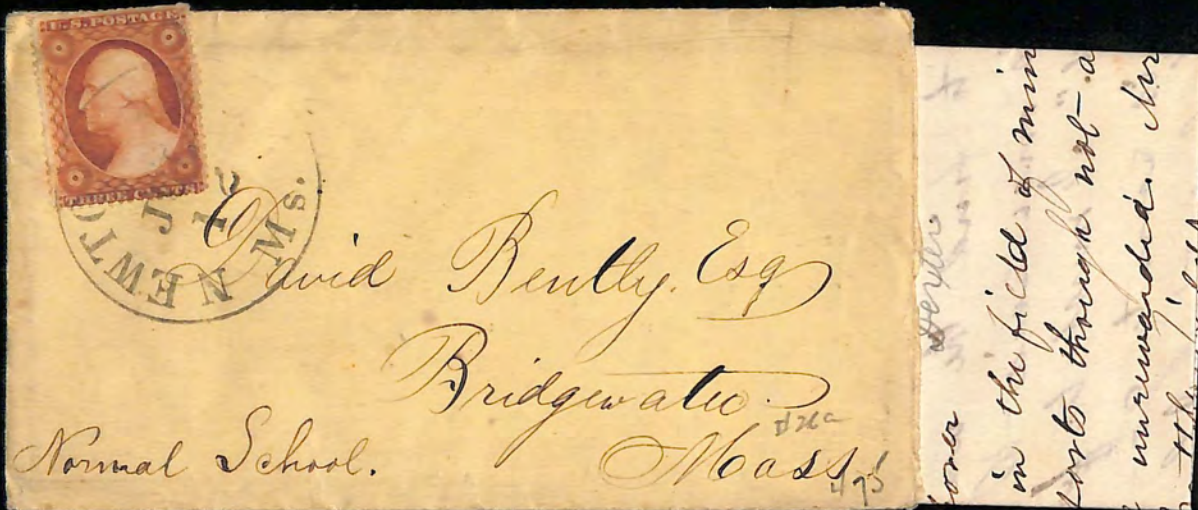 U.S. POSTAGE
THREE CENTS
NEWTO
J 12
Ms.
David Bently. Esq
Bridgewater.
Mass.
Normal School.
#26a
475
in the field of min
forts though not a
unrewarded. Mr